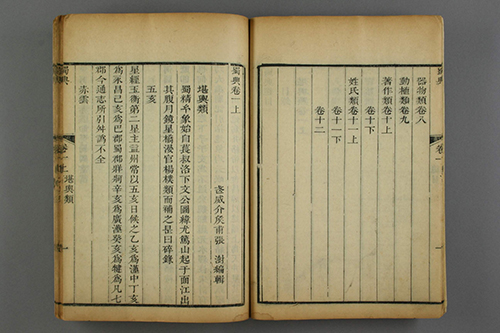 器物類卷八
動植類卷九
著作類卷十上
卷十下
姓氏類卷十一上
卷十一下
卷十二
蜀典卷一上
武威介侯甫張 澍編輯
堪輿類
蜀精乎象始自萇叔洛下文公圖緯尤篤山起于面江出
其腹月鏡星橋漫官楊樸類而補之是曰碎錄
五亥
星經玉衡第二星主益州常以五亥日候之乙亥爲漢中丁亥
爲永昌己亥爲巴郡蜀郡牂牁辛亥爲廣漢癸亥爲犍爲凡七
郡今通志所引舛譌不全
赤雲
蜀典
卷一上 堪輿類
一